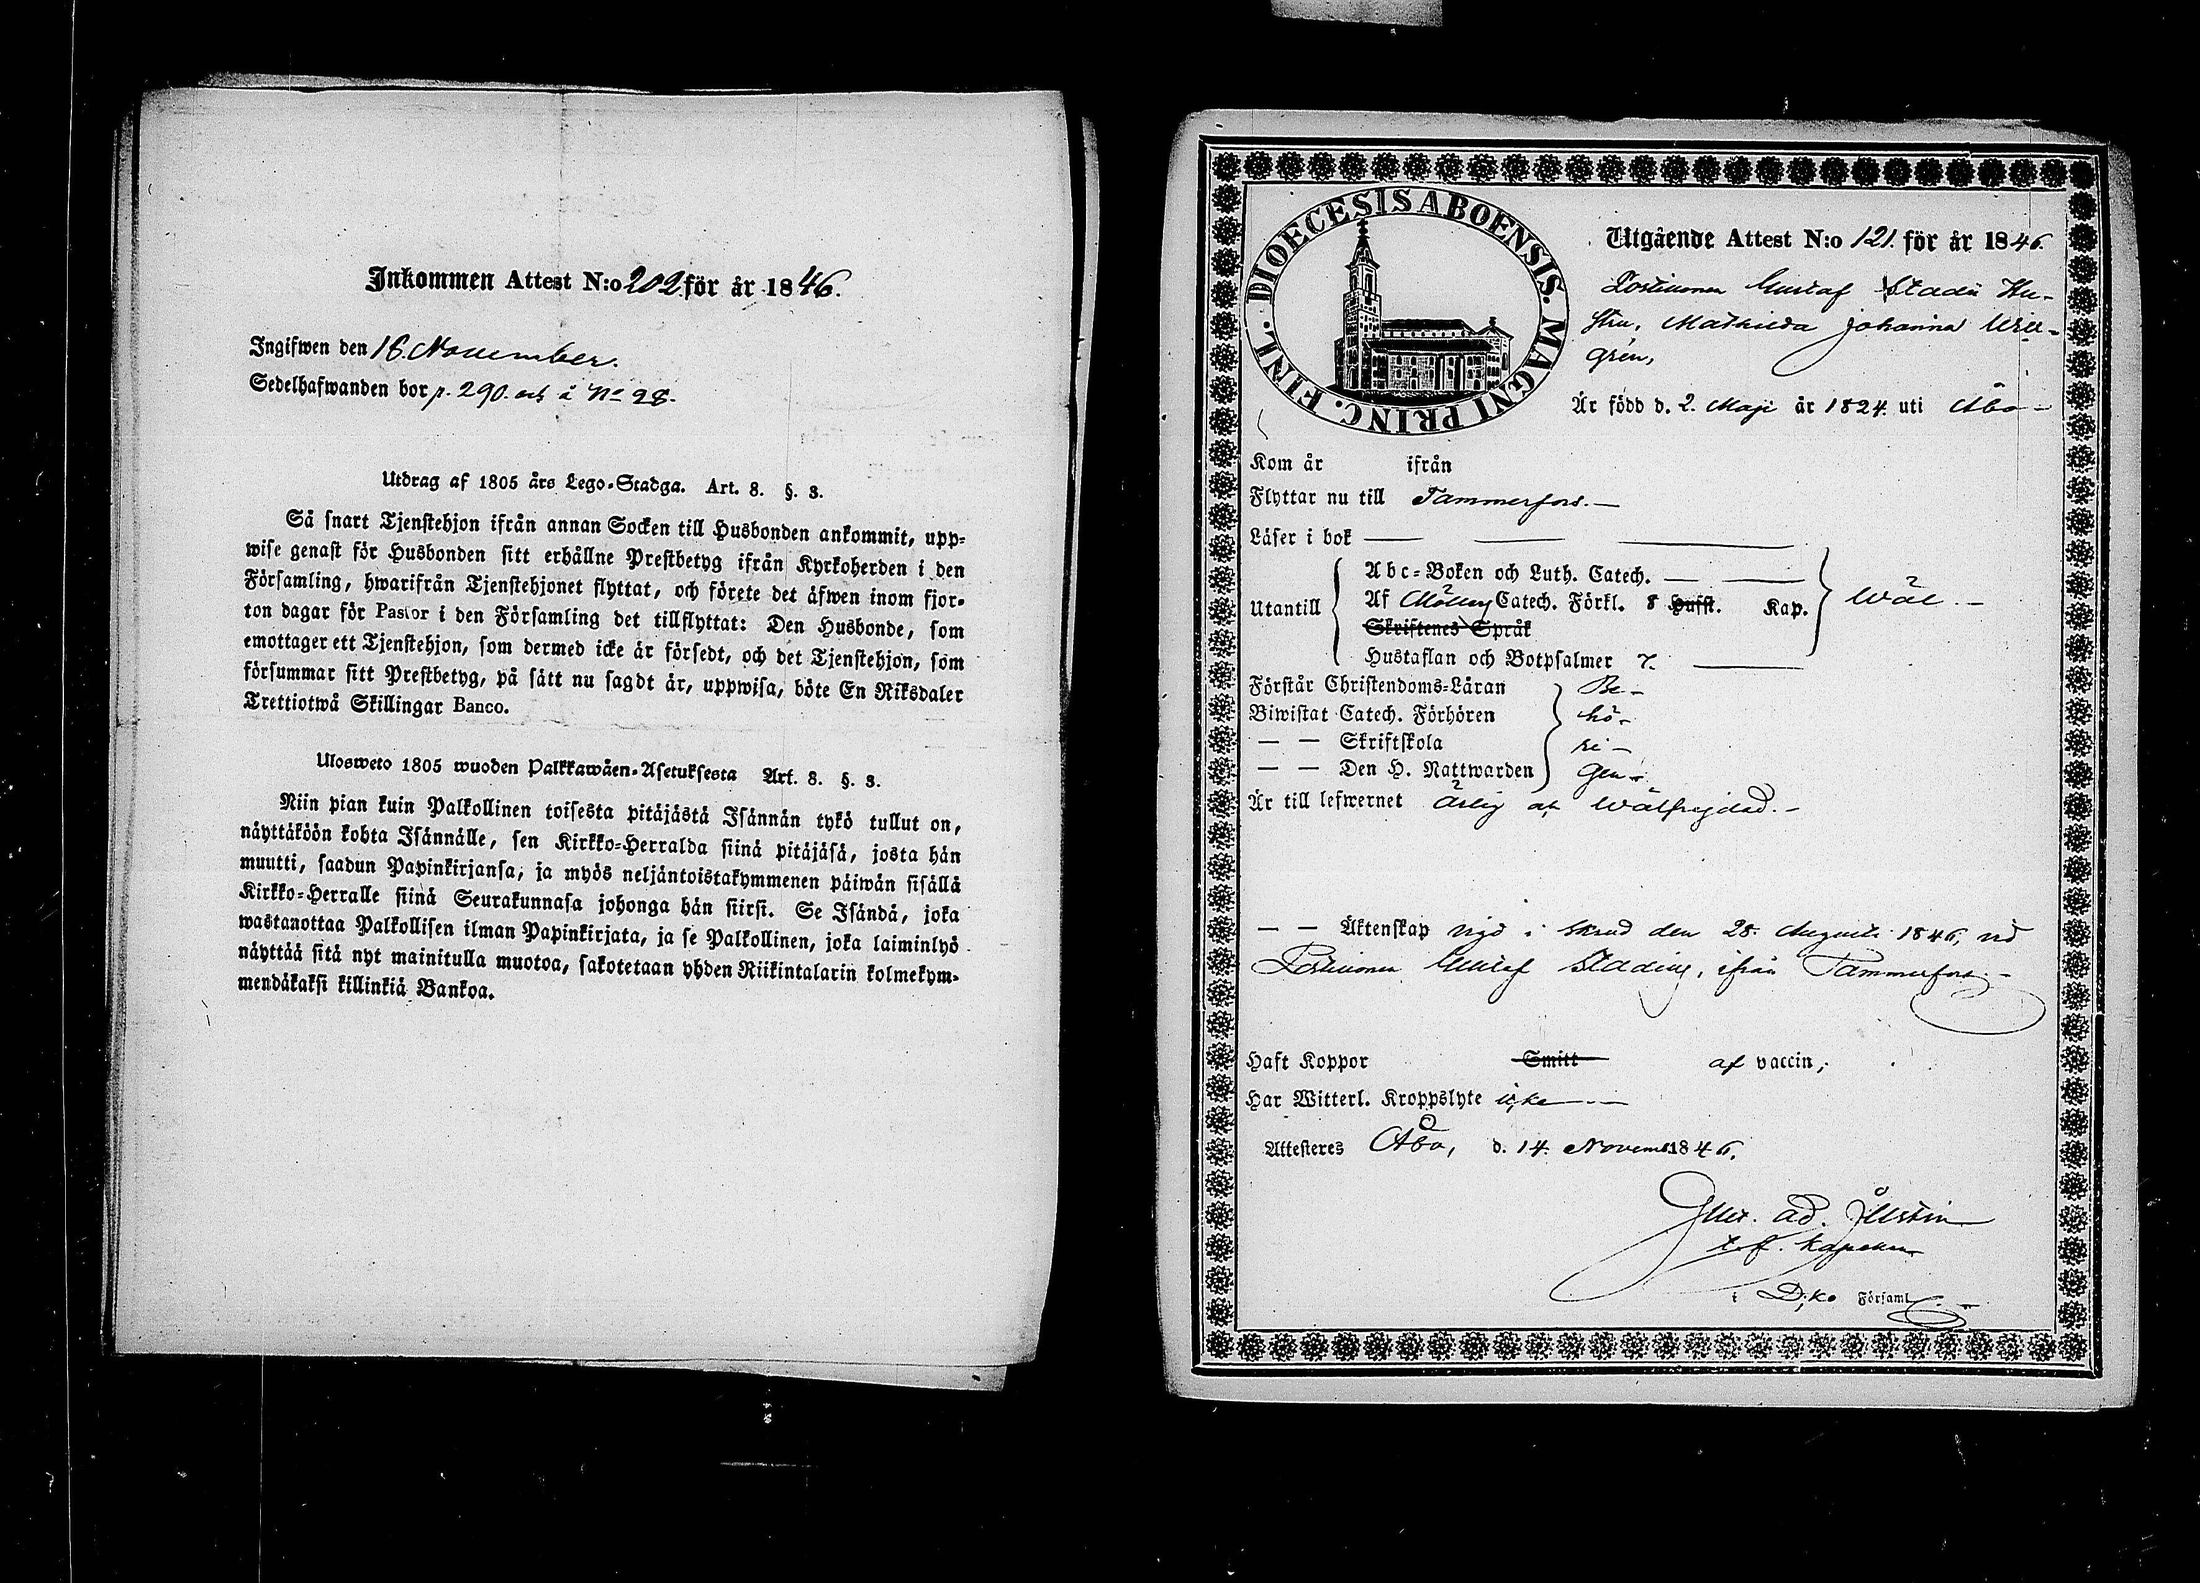 Inkommen Attest N:o 202 för år 1846.
Ingifwen den 16 November.
Sedelhafwanden bor p. 290. och å No 28.
Utdrag af 1805 års Lego-Stadga. Art. 8. §. 3.
Så snart Tjenstehjon ifrån annan Socken till Husbonden ankommit, upp-
wise genast för Husbonden sitt erhållne Prestbetyg ifrån Kyrkoherden i den
Församling, hwarifrån Tjenstehjonet flyttat, och förete det äfwen inom fjor-
ton dagar för Pastor i den Församling det tillflyttat: Den Husbonde, som
emottager ett Tjenstehjon, som dermed icke är försedt, och det Tjenstehjon, som
försummar sitt Prestbetyg, på sätt nu sagdt är, uppwisa, böte En Riksdaler
Trettiotwå Skillingar Banco.
Ulosweto 1805 wuoden Palkkawäen-Asetuksesta Art. 8. §. 3.
Niin pian kuin Palkollinen toisesta pitäjästä Isännän tykö tullut on,
näyttäköön kohta Isännälle, sen Kirkko-Herralda siinä pitäjäsä, josta hän
muutti, saadun Papinkirjansa, ja myös neljäntoistakymmenen päiwän sisällä
Kirkko-Herralle siinä Seurakunnasa johonga hän siirsi. Se Isändä, joka
wastanottaa Palkollisen ilman Papinkirjata, ja se Palkollinen, joka laiminlyö
näyttää sitä nyt mainitulla muotoa, sakotetaan yhden Riikintalarin kolmekym-
mendäkaksi killinkiä Bankoa.
DIOECESIS ABOENSIS. MAGNI PRINC. FINL.
Utgående Attest N:o 121. för år 1846.
Postilionen Gustaf Stadii Hu-
stru, Mathilda Johanna
grén,
Är född d. 2. Maji år 1824. uti Åbo -
Kom år ifrån
Flyttar nu till Tammerfors. -
Läser i bok
Utantill
Abc-Boken och Luth. Catech.
Af Catech. Förkl. 8 Hufst. Kap.
Skriftenes Språk
Hustaflan och Botpsalmer 7.
Wäl. -
Förstår Christendoms-Läran Be-
Biwistat Catech. Förhören hö-
— — Skriftskola ri-
— — Den H. Nattwarden gen -
Är till lefwernet ärlig och wälfrejdad. -
— — Äktenskap vigd i skrud den 28. Augusti 1846, vid
Postilionen Gustaf Stading, ifrån Tammerfors. -
Haft Koppor Smitt af vaccin,
Har Witterl. Kroppslyte icke
Attesteres Åbo, d. 14. Novemb. 1846.
Gust. Ad.
t.f. kapellan
i D:ko Församl.